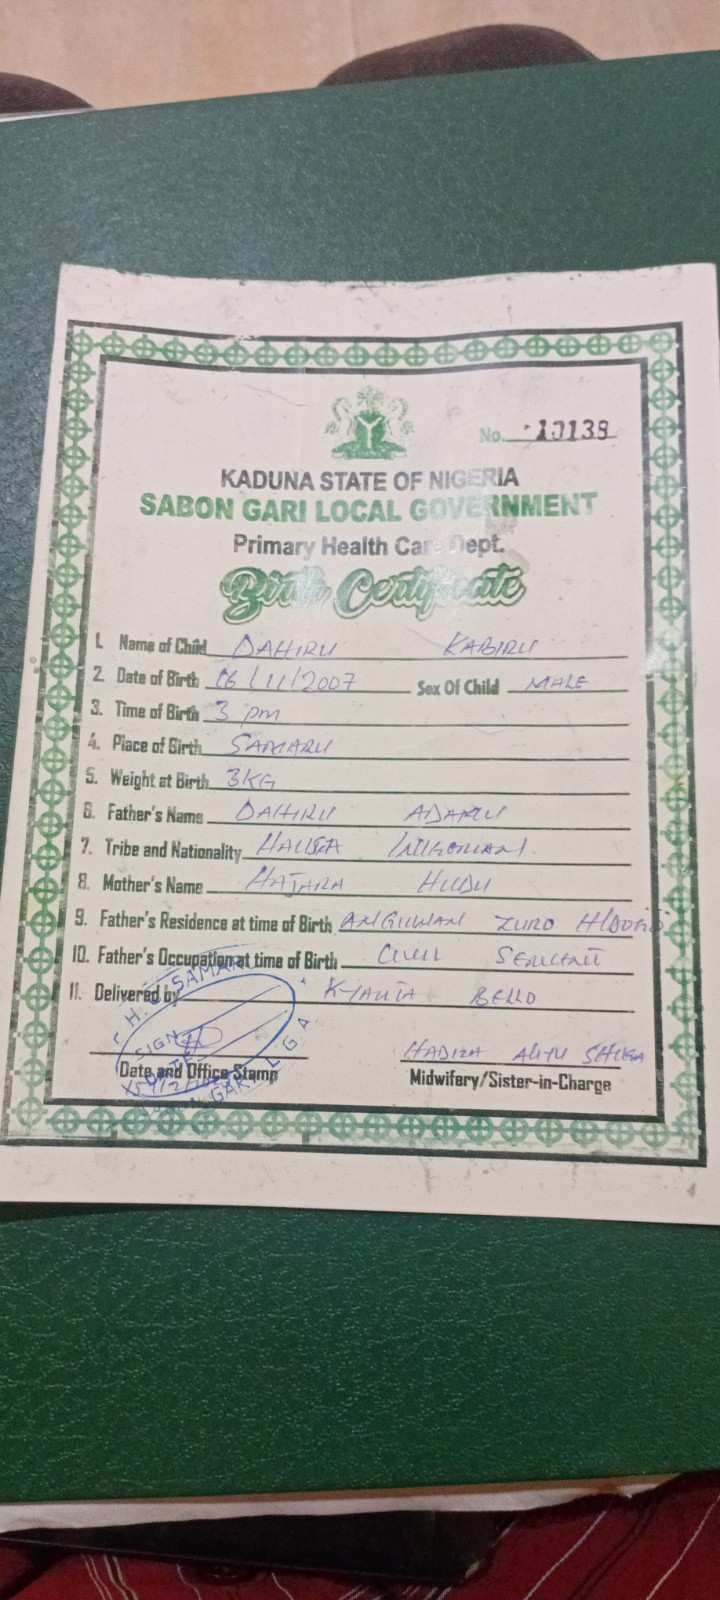 No. 10138
KADUNA STATE OF NIGERIA
SABON GARI LOCAL GOVERNMENT
Primary Health Care Dept.
Birth Certificate
1. Name of Child DAHIRU KABIRU
2. Date of Birth 16/11/2007 Sex Of Child MALE
3. Time of Birth 3 pm
4. Place of Birth SAMARU
5. Weight at Birth 3KG
6. Father's Name DAHIRU ADAMU
7. Tribe and Nationality HAUSA
8. Mother's Name HAJARA HUDU
9. Father's Residence at time of Birth ANGUWAN ZURO
10. Father's Occupation at time of Birth CIVIL SERVANT
11. Delivered by BELLO
SAMARU
SIGN
DATE
Date and Office Stamp
HADIZA ALIYU SHIKA
Midwifery/Sister-in-Charge